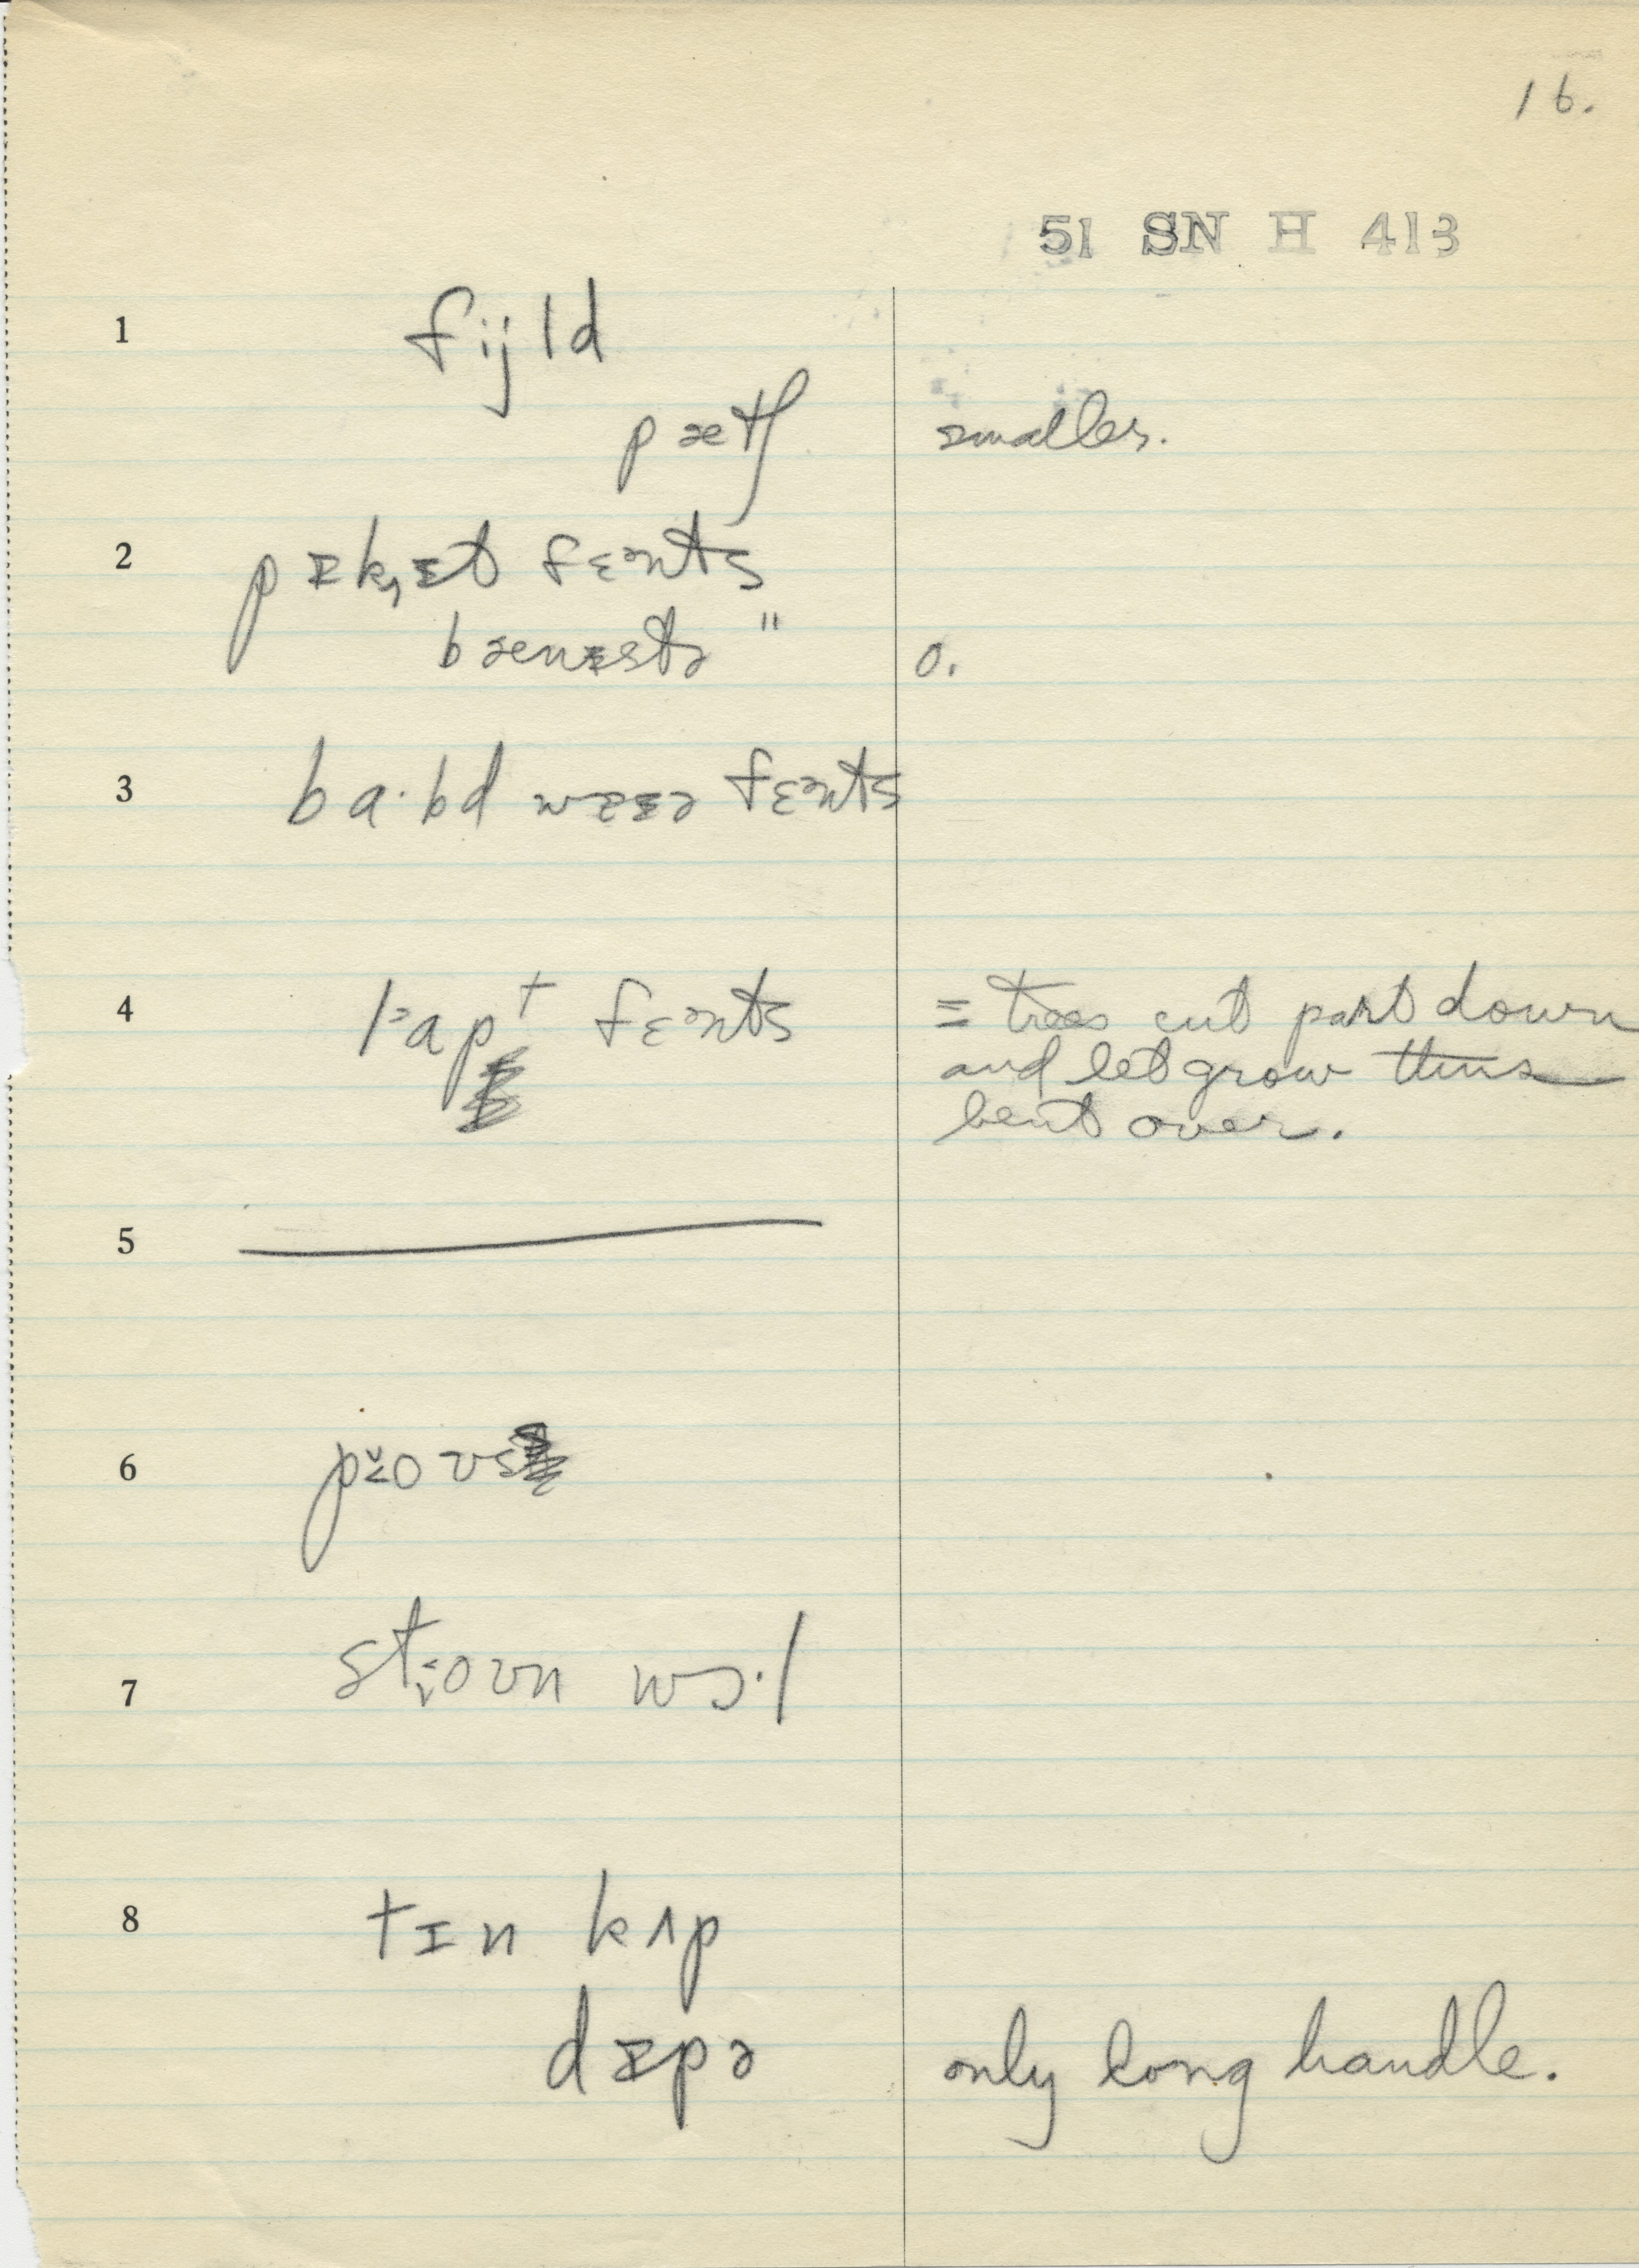 16.
51 SN H 413
1 fijld
pætʃ smaller.
2 pɪk̩ɪt fɛənts
bænɪstə " o.
3 ba·bd wɪə fɛənts
4 fɛənts = trees cut part down
and let grow thus
bent over.
5
6
7 wɔ·l
8 tɪn kʌp
dɪpə only long handle.